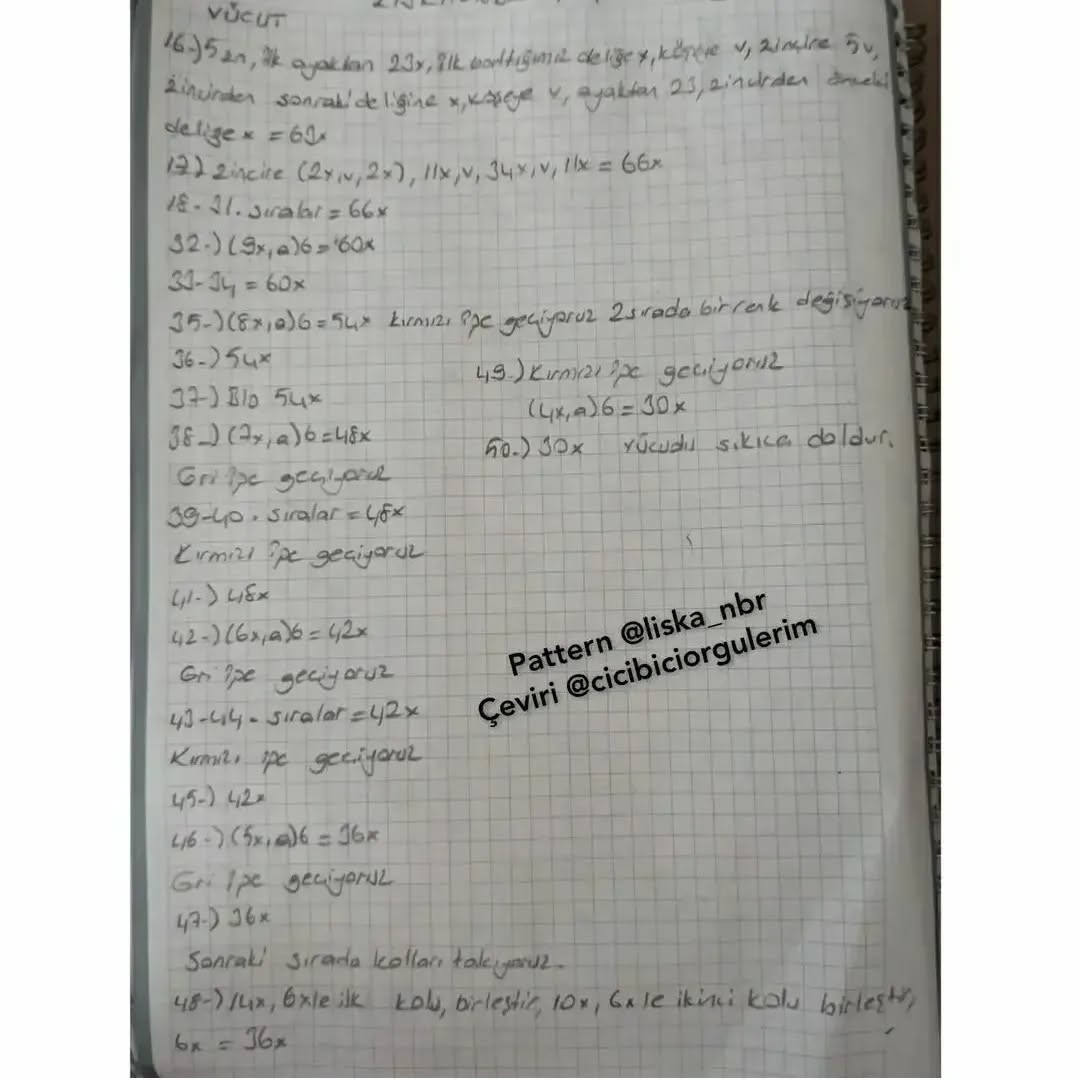 VÜCUT
16-) 5 zn, ilk ayaktan 23x, ilk battığımız deliğe x, köşeye v, zincire 5v,
zincirden sonraki deliğine x, köşeye v, ayaktan 23, zincirden önceki
deliğe x = 63x
17-) zincire (2x,v,2x), 11x,v, 34x,v, 11x = 66x
18-31. sıralar = 66x
32-) (9x,a)6 = 60x
33-34 = 60x
35-) (8x,a)6 = 54x kırmızı ipe geçiyoruz 2 sırada bir renk değişiyoruz
36-) 54x
37-) Blo 54x
38-) (7x,a)6 = 48x
Gri ipe geçiyoruz
39-40. sıralar = 48x
Kırmızı ipe geçiyoruz
41-) 48x
42-) (6x,a)6 = 42x
Gri ipe geçiyoruz
43-44. sıralar = 42x
Kırmızı ipe geçiyoruz
45-) 42x
46-) (5x,a)6 = 36x
Gri ipe geçiyoruz
47-) 36x
Sonraki sırada kolları takıyoruz.
48-) 14x, 6x le ilk kolu, birleştir, 10x, 6x le ikinci kolu birleştir,
6x = 36x
49-) Kırmızı ipe geçiyoruz
(4x,a)6 = 30x
50-) 30x vücudu sıkıca doldur.
Pattern @liska_nbr
Çeviri @cicibiciorgulerim